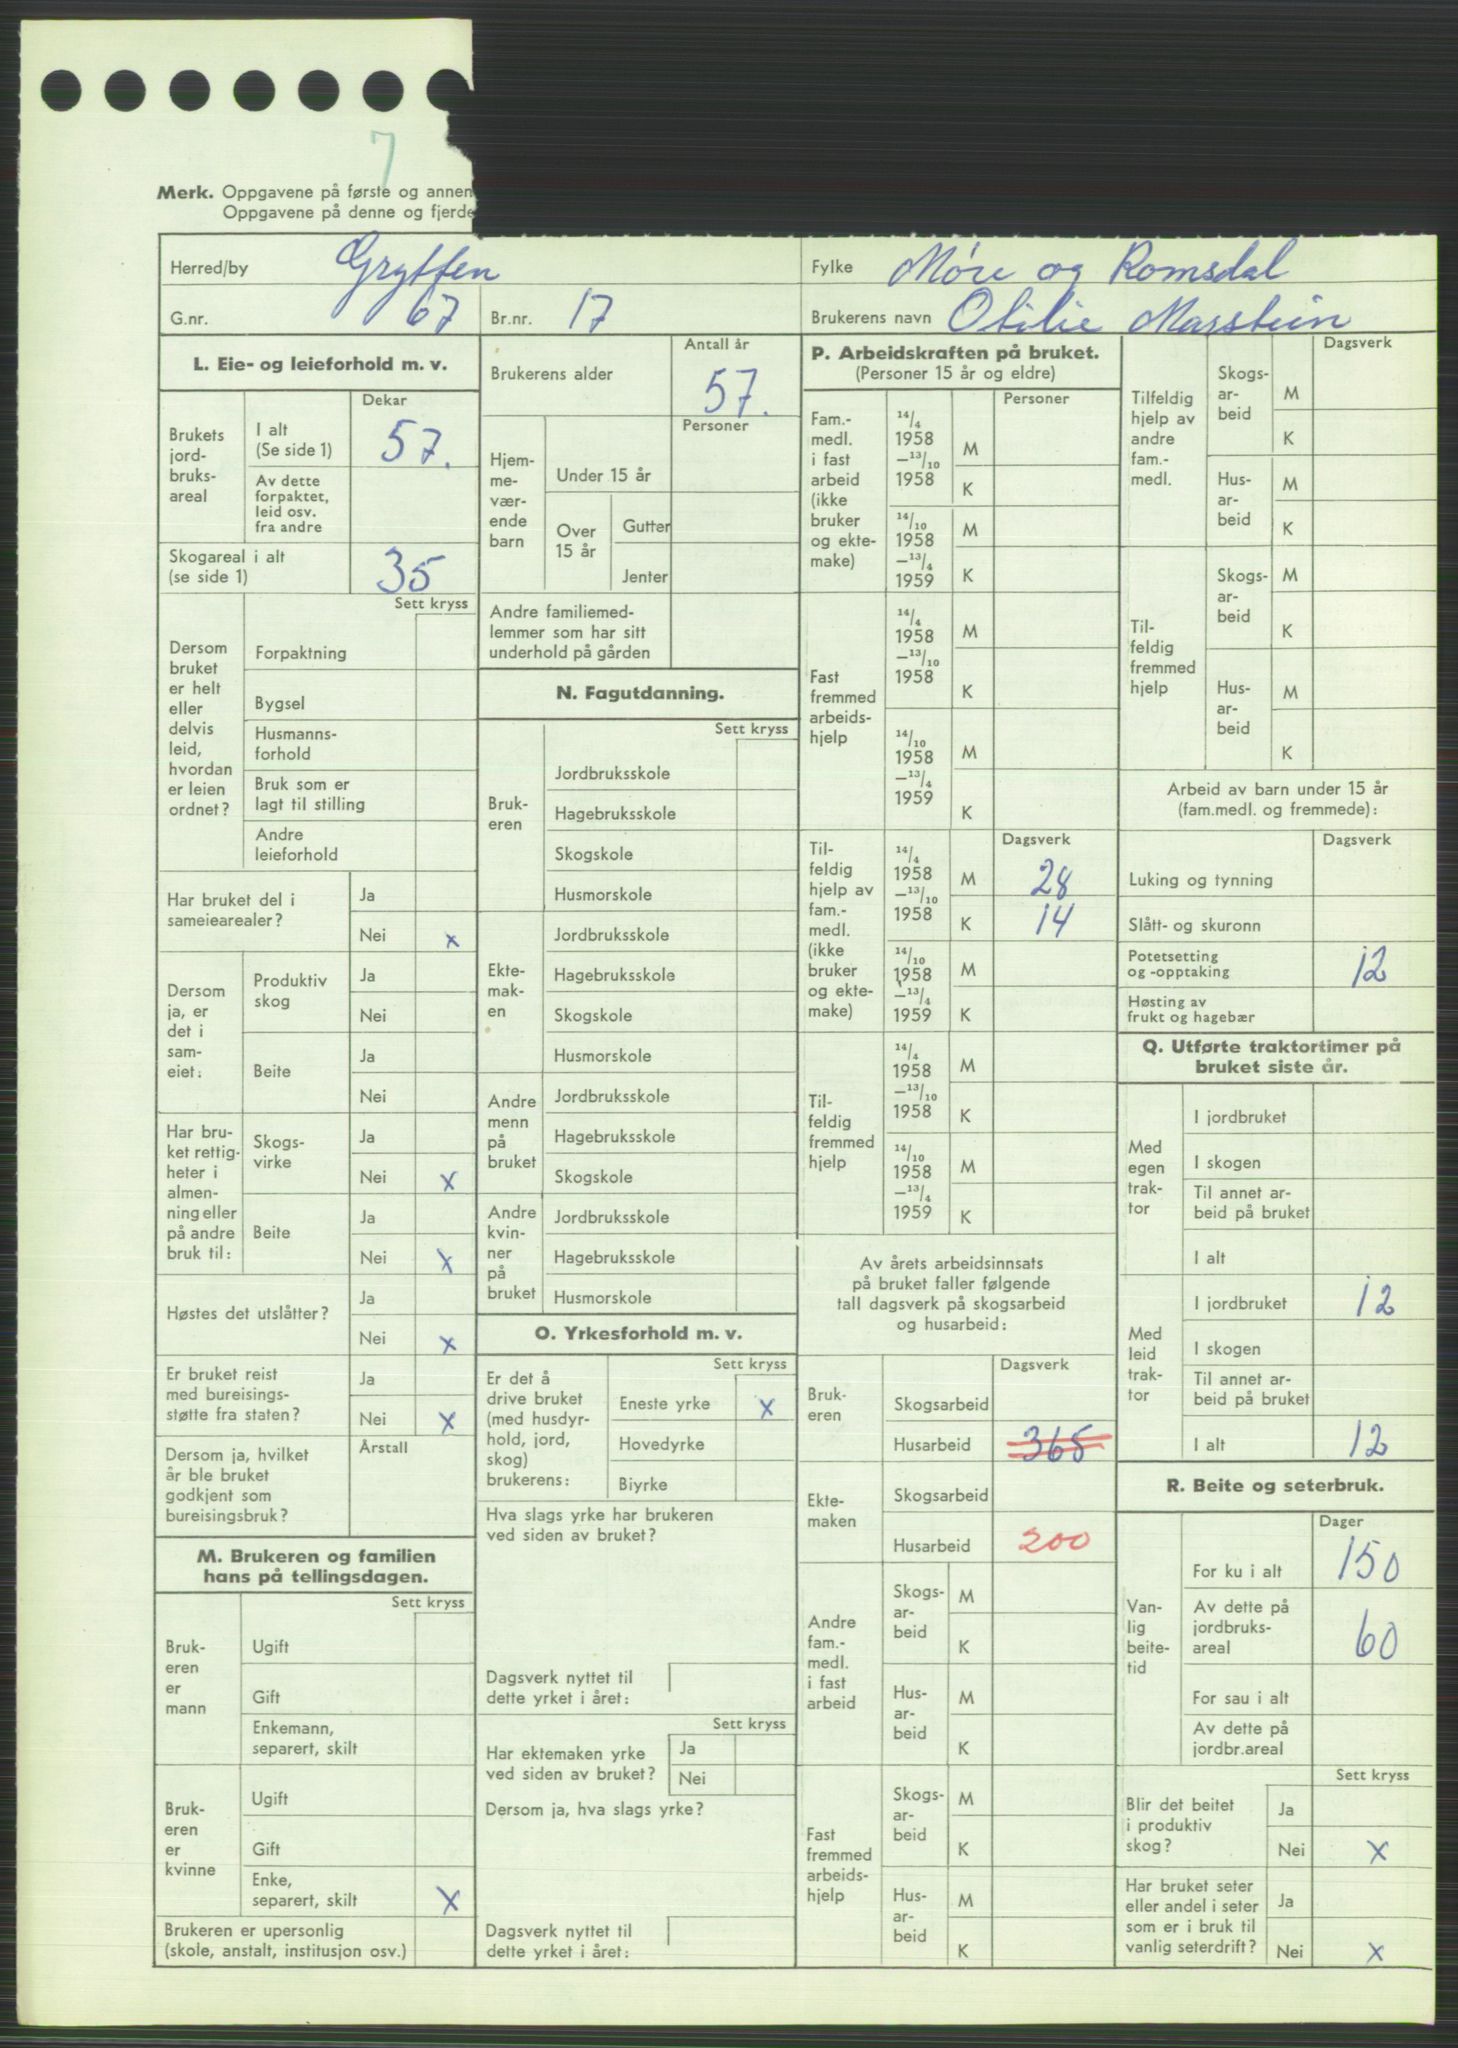 7
Merk. Oppgavene på første og annen
Oppgavene på denne og fjerde
Herred/by Grytten
Fylke Møre og Romsdal
G.nr. 67 Br.nr. 17
Brukerens navn Otilie Marstein
L. Eie- og leieforhold m. v.
Dekar
Brukets jord-
bruks-
areal
I alt
(Se side 1) 57.
Av dette
forpaktet,
leid osv.
fra andre
Skogareal i alt
(se side 1) 35
Sett kryss
Dersom
bruket
er helt
eller
delvis
leid,
hvordan
er leien
ordnet?
Forpaktning
Bygsel
Husmanns-
forhold
Bruk som er
lagt til stilling
Andre
leieforhold
Har bruket del i
sameiearealer?
Ja
Nei x
Dersom
ja, er
det i
sam-
eiet:
Produktiv
skog
Ja
Nei
Beite
Ja
Nei
Har bru-
ket rettig-
heter i
almen-
ning eller
på andre
bruk til:
Skogs-
virke
Ja
Nei x
Beite
Ja
Nei x
Høstes det utslåtter?
Ja
Nei x
Er bruket reist
med bureisings-
støtte fra staten?
Ja
Nei x
Dersom ja, hvilket
år ble bruket
godkjent som
bureisingsbruk?
Årstall
M. Brukeren og familien
hans på tellingsdagen.
Sett kryss
Bruk-
eren
er
mann
Ugift
Gift
Enkemann,
separert, skilt
Bruk-
eren
er
kvinne
Ugift
Gift
Enke,
separert, skilt x
Brukeren er upersonlig
(skole, anstalt, institusjon osv.)
Antall år
Brukerens alder 57.
Personer
Hjem-
me-
vær-
ende
barn
Under 15 år
Over
15 år
Gutter
Jenter
Andre familiemed-
lemmer som har sitt
underhold på gården
N. Fagutdanning.
Sett kryss
Bruk-
eren
Jordbruksskole
Hagebruksskole
Skogskole
Husmorskole
Ekte-
mak-
en
Jordbruksskole
Hagebruksskole
Skogskole
Husmorskole
Andre
menn
på
bruket
Jordbruksskole
Hagebruksskole
Skogskole
Andre
kvin-
ner
på
bruket
Jordbruksskole
Hagebruksskole
Husmorskole
O. Yrkesforhold m. v.
Sett kryss
Er det å
drive bruket
(med husdyr-
hold, jord,
skog)
brukerens:
Eneste yrke x
Hovedyrke
Biyrke
Hva slags yrke har brukeren
ved siden av bruket?
Dagsverk nyttet til
dette yrket i året:
Sett kryss
Har ektemaken yrke
ved siden av bruket?
Ja
Nei
Dersom ja, hva slags yrke?
Dagsverk nyttet til
dette yrket i året:
P. Arbeidskraften på bruket.
(Personer 15 år og eldre)
Personer
Fam.-
medl.
i fast
arbeid
(ikke
bruker
og ekte-
make)
14/4
1958
—13/10
1958
M
K
14/10
1958
—13/4
1959
M
K
Fast
fremmed
arbeids-
hjelp
14/4
1958
—13/10
1958
M
K
14/10
1958
—13/4
1959
M
K
Dagsverk
Til-
feldig
hjelp av
fam.-
medl.
(ikke
bruker
og ekte-
make)
14/4
1958
—13/10
1958
M 28
K 14
14/10
1958
—13/4
1959
M
K
Til-
feldig
fremmed
hjelp
14/4
1958
—13/10
1958
M
K
14/10
1958
—13/4
1959
M
K
Av årets arbeidsinnsats
på bruket faller følgende
tall dagsverk på skogsarbeid
og husarbeid:
Dagsverk
Bruk-
eren
Skogsarbeid
Husarbeid 365
Ekte-
maken
Skogsarbeid
Husarbeid 200
Andre
fam.-
medl.
i fast
arbeid
Skogs-
ar-
beid
M
K
Hus-
ar-
beid
M
K
Fast
fremmed
arbeids-
hjelp
Skogs-
ar-
beid
M
K
Hus-
ar-
beid
M
K
Dagsverk
Tilfeldig
hjelp av
andre
fam.-
medl.
Skogs-
ar-
beid
M
K
Hus-
ar-
beid
M
K
Til-
feldig
fremmed
hjelp
Skogs-
ar-
beid
M
K
Hus-
ar-
beid
M
K
Arbeid av barn under 15 år
(fam.medl. og fremmede):
Dagsverk
Luking og tynning
Slått- og skuronn
Potetsetting
og -opptaking 12
Høsting av
frukt og hagebær
Q. Utførte traktortimer på
bruket siste år.
Med
egen
trak-
tor
I jordbruket
I skogen
Til annet ar-
beid på bruket
I alt
Med
leid
trak-
tor
I jordbruket 12
I skogen
Til annet ar-
beid på bruket
I alt 12
R. Beite og seterbruk.
Dager
Van-
lig
beite-
tid
For ku i alt 150
Av dette på
jordbruks-
areal 60
For sau i alt
Av dette på
jordbr.areal
Sett kryss
Blir det beitet
i produktiv
skog?
Ja
Nei x
Har bruket seter
eller andel i seter
som er i bruk til
vanlig seterdrift?
Ja
Nei x